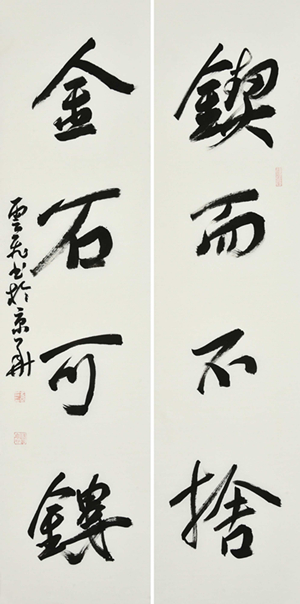 鍥而不捨
金石可鏤
雲飛书於京華